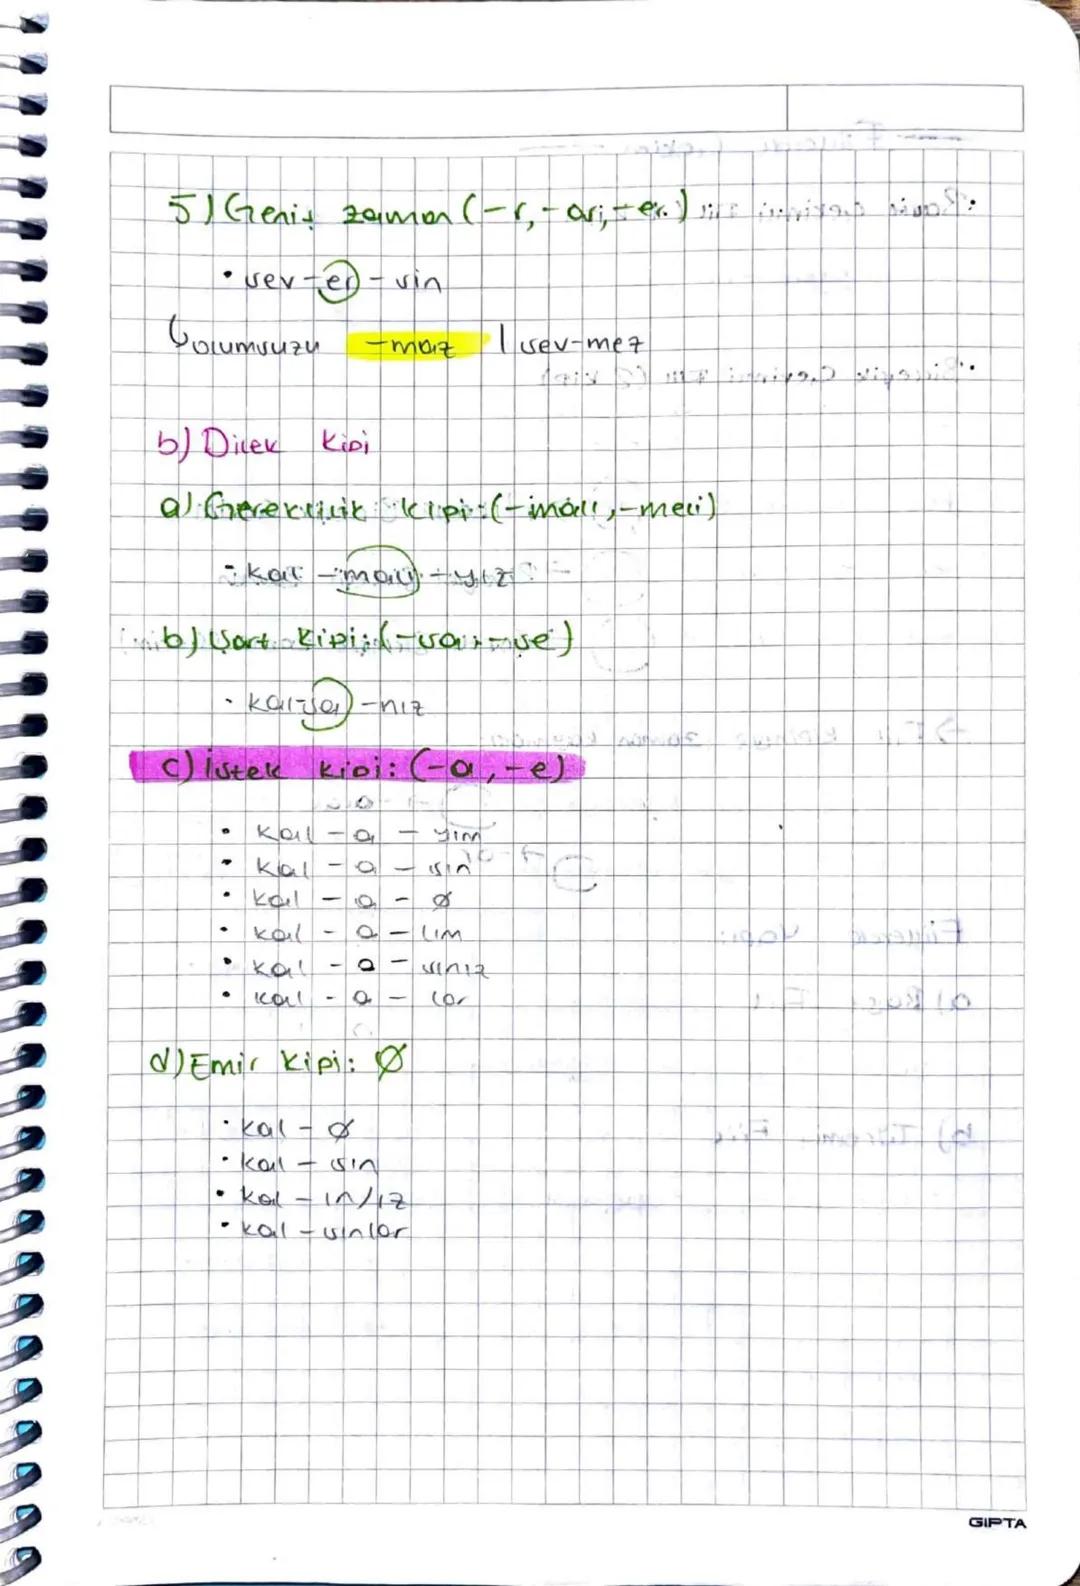 5) Geniş zaman (-r, -ar, -er)
• sev-er-sin
↳ olumsuzu -maz | sev-mez
b) Dilek Kipi
a) Gereklilik kipi: (-malı, -meli)
• kal-malı-yız
b) Şart Kipi: (-sa, -se)
• kal-sa-nız
c) İstek kipi: (-a, -e)
• kal - a - yım
• kal - a - sın
• kal - a - Ø
• kal - a - lım
• kal - a - sınız
• kal - a - lar
d) Emir Kipi: Ø
• kal - Ø
• kal - sın
• kal - ın/ız
• kal - sınlar
GIPTA